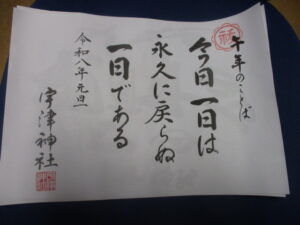 午年のことば
今日一日は
永久に戻らぬ
一日である
令和八年元旦
宇津神社